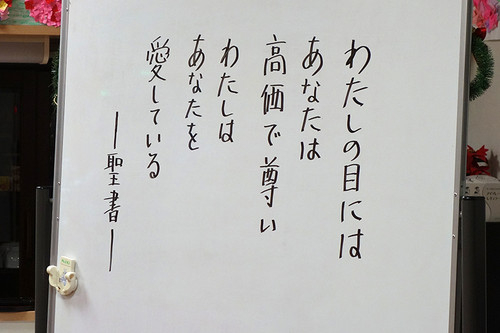 わたしの目には
あなたは
高価で尊い
わたしは
あなたを
愛している
―聖書―